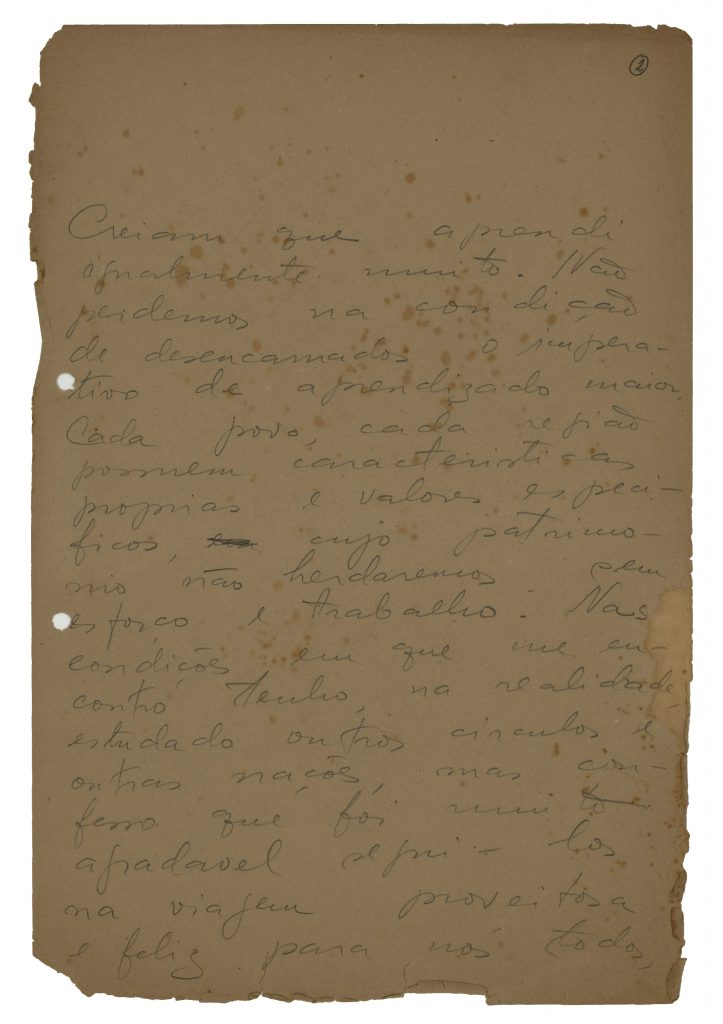 2
Creiam que aprendi
igualmente muito. Não
perdemos na condição
de desencarnados o impera-
tivo de aprendizado maior.
Cada povo, cada região
possuem caracteristicas
proprias e valores especi-
ficos, cujo patrimo-
nio não herdaremos sem
esforço e trabalho. Nas
condições em que me en-
contro tenho, na realidade,
estudado outros circulos e
outras nações, mas con-
fesso que foi muito
agradavel segui-los
na viagem proveitosa
e feliz para nós todos,